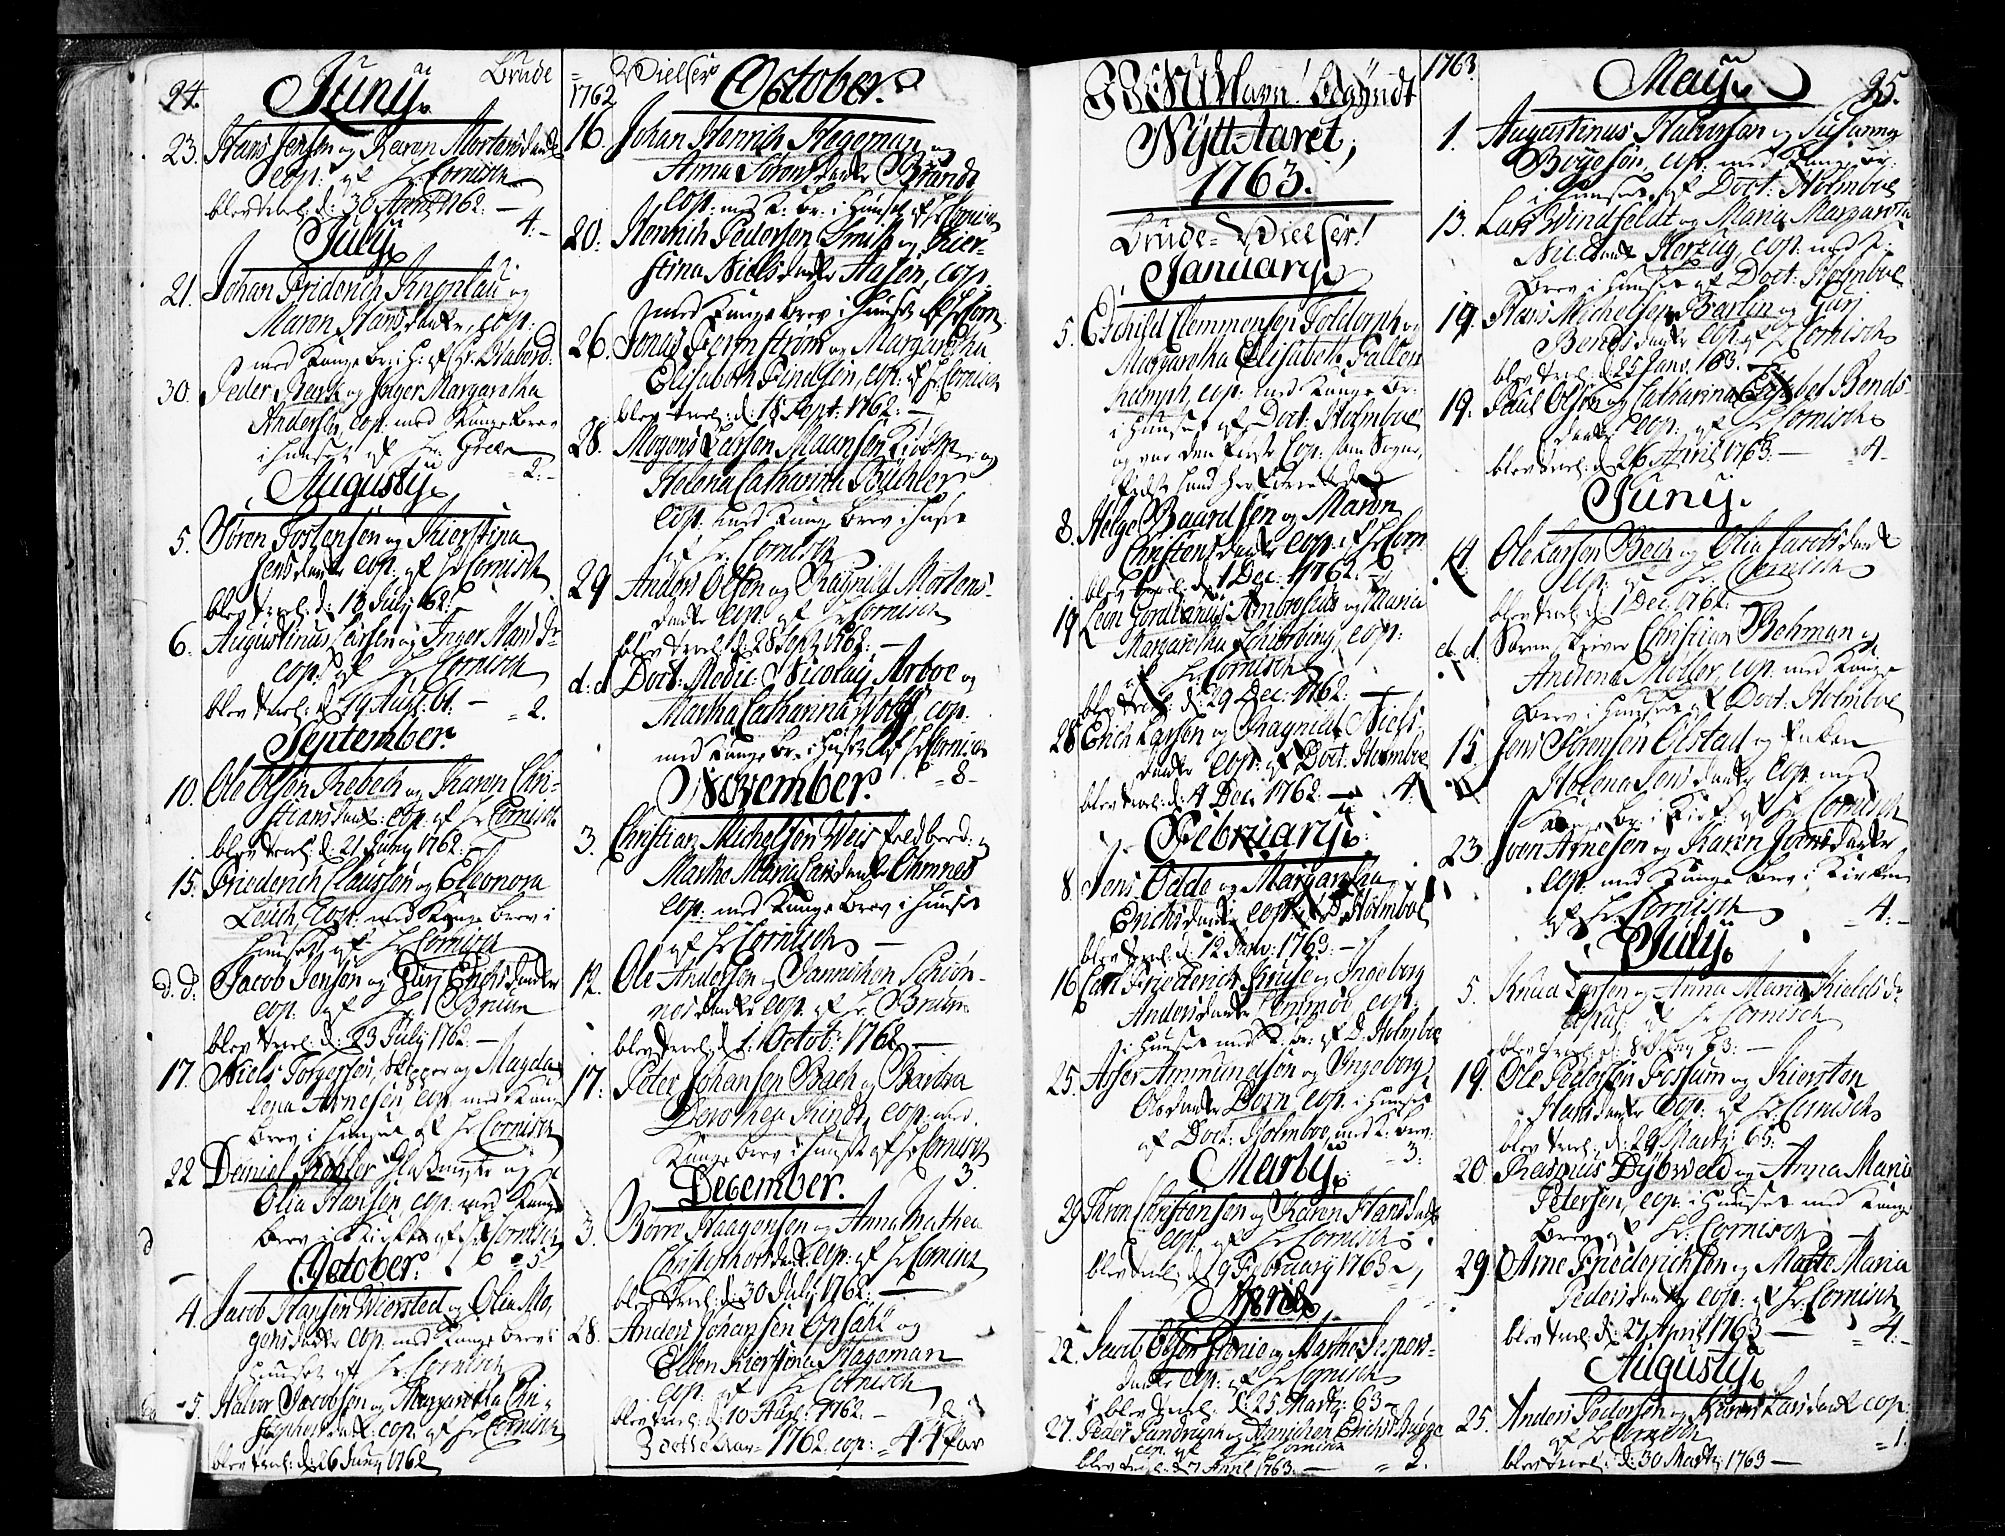 24.
Juny.
Brude
23. Hans Jensen og Karen Mortensdaater
cop: af Hr Cornisch
blev trol: d: 30 April 1762. —
4. -
July.
21. Johan Friderich og
Maren Hansdaater, cop:
med Konge br: i H: af Hr.
30. Peder og Inger Margaretha
Andersen, cop: med Konge Brev
i Huuset af Hr. Green
= 2. -
Augusty.
5. Søren Tostensen og Kierstina
Jensdaater cop: af Hr Cornisch
blev trol: d: 18 July 62. —
6. Augustinus Larsen og Inger Hansdr
cop: af Hr Cornisch
blev trol: d: 19 Aug. 61. — = 2.
September.
10. Ole Olsen Rebech og Karen Chri-
stiansdaat: cop: af Hr Cornisch
blev trol: d: 21 Juny 1762. —
15. Friederich Claussen og Eleonora
Leuch, cop: med Konge Brev i
Huuset af Hr Cornisch
d. d: Jacob Jensen og Guri Erichsdaater
cop: af Hr Bruun
blev trol: d: 23 July 1762. —
17. Niels Torgersen, Skipper og Magda-
lena Arnesen, cop: med Konge
Brev i Huuset af Hr Cornisch
22 Daniel Køhler og
Olia Hansen, cop: med Konge
Brev i Kirken af Hr Cornisch
= 5
October.
4. Jacob Hansen Wiersted og Olia Mo-
gensdaater cop: med Konge Brev i
Huuset af Hr. Cornisch
5. Halvor Jacobsen og Margaretha Chri-
stophersdaat: cop: af Hr Cornisch
blev trol: d: 26 Juny 1762
= Vielser
1762
October.
16. Johan Henrich Hegeman og
Anna Sørensdaater Brandt
cop: med K: Br: i Huuset af Hr Cornisch
20. Hennich Pedersen Smith og Kier-
stina Nielsdaater Aasen, cop:
med Konge Brev i Huuset af Hr Corn:
26. Jonas Fernstrøm og Margaretha
Elisabeth Findsen, cop: af Hr Cornisch
blev trol: d: 18 Sept: 1762. —
28. Mogens Larsen Maansen og
Helena Catharina Büchler
cop: med Konge Brev i Huuset
af Hr. Cornisch
29 Anders Olsen og Ragnild Mortens-
daater cop: af Hr Cornisch
blev trol: d: 28 Sept 1762. —
d: d Doct: Medic: Nicolay Arboe og
Martha Catharina Wolff, cop:
med Konge Br: i Huuset af Hr Cornisch
= 8 -
November.
3. Christian Michelsen Weis og
Marthe Maria Larsdaater Chmnes
cop: med Konge Brev i Huuset
af Hr Cornisch —
12. Ole Andersen og Sannichen Schiøn-
nesdaater cop: af Hr Bruun
blev trol: d: 1. Octob: 1762 —
17. Peter Johansen Bach og Barbra
Dorothea Rindt, cop: med
Konge Brev i Huuset af Hr Cornisch
3.
December.
3. Børre Haagensen og Anna Mathea
Christophersdaat: cop: af Hr Cornisch
blev trol: d: 30 July 1762. —
28. Anders Johansen Opsahl og
Ellen Kierstina Hageman
cop: af Hr Cornisch
blev trol: d: 10 Aug: 1762. — 2
1762. cop: = 44 Par
1763
JESU Navn! begyndt
Nytt-Aaret,
1763.
Brude = Vielser!
January.
5. Eschild Clemmensen Toldorph og
Margaretha Elisabeth Fallen-
kamph, cop: med Konge Br:
i Huuset af Doct: Holmboe
og var den første Cop: som Sogne-
8. Helge Baardsen og Maren
Christensdaater cop: af Hr Corn
blev trol: d: 1 Dec: 1762. —
19 Leon Gordianus Ambrosius og Maria
Margaretha Schiorbing, cop:
af Hr. Cornisch
blev trol: d: 29 Dec: 1762. —
28 Erich Larsen og Ragnild Niels-
daater cop: af Doct: Holmboe
blev trol: d: 4 Dec: 1762 — 4.
February.
8. Jens Odde og Margaretha
Erichsdaater cop: af D Holmboe
blev trol: d: 12 Janv: 1763. —
16 Carl Friederich Kruse og Ingeborg
Andersdaater cop:
i Huuset med K: Br: af D. Holmboe
25. Asser Ammundsen og Ingeborg
Olsdaater Dorn cop: i Huuset
af Doct: Holmboe med K: Brev:
= 3:
Marty.
29. Thron Christensen og Karen Hansdaater
cop: af Hr Cornisch
blev trol: d: 9 February 1763 — 1
April
22. Jacob Olsen og Marthe Jespers-
daater cop: af Hr Cornisch
blev trol: d: 25 Marty: 63 —
27. Peder Sundruph og Annichen Erichsd Bugge
cop: af Hr Cornisch
blev trol: d 7 April 1763. — = 2.
May.
25.
1. Augustinus Halvorsen og Susanna
Boyesen, cop: med Konge br:
i Huuset af Doct: Holmboe
13. Lars Windfeldt og Maria Margareta
Nielsdaater Herzug, cop: med K:
Brev i Huuset af Doct: Holmboe
19. Hans Michelsen Berlin og Guri
Bendsdaater cop: af Hr Cornisch
blev trol: d: 25 Janv. 163. —
19. Paul Olsen og Catharina Elisabet Bends-
daater cop: af Hr Cornisch
blev trol: d 26 April 1763. — = 4 -
Juny.
14. Ole Larsen Bech og Olia Jacobsdaater
cop: af Hr. Cornisch
blev trol: d: 1 Dec: 1762.
d. d. Christian Bohman og
Andrena Møller, cop: med Konge
Brev i Huuset af Doct: Holmboe
15. Jens Sørensen Olstad og Enken
Helena Jensdaater cop: med
Konge Br: i Kirk: af Hr Cornisch
23 Sven Arnesen og Karen Joensdaater
cop: med Konge Brev i Kirken
af Hr Cornisch = 4. -
July.
5. Knud Larsen og Anna Maria Kieldsdr
Copul: af Hr Cornisch
blev trol: d: 8 Juny 63. —
19. Ole Pedersen Fossum og Kiersten
Hansdaater cop: af Hr. Cornisch
blev trol: d: 29 Marty: 63. —
20. Rasmus Dybweld og Anna Maria
Petersen, cop: i Huuset med Konge
Brev af Hr: Cornisch —
29. Arne Friederichsen og Marte Maria
Pedersdaater cop: af Hr: Cornisch
blev trol: d: 27 April 1763 — = 4. -
Augusty.
25. Anders Pedersen og Karen Larsdaat cop:
af Hr Cornisch = 1.
blev trol: d: 30 Marty 1763 —